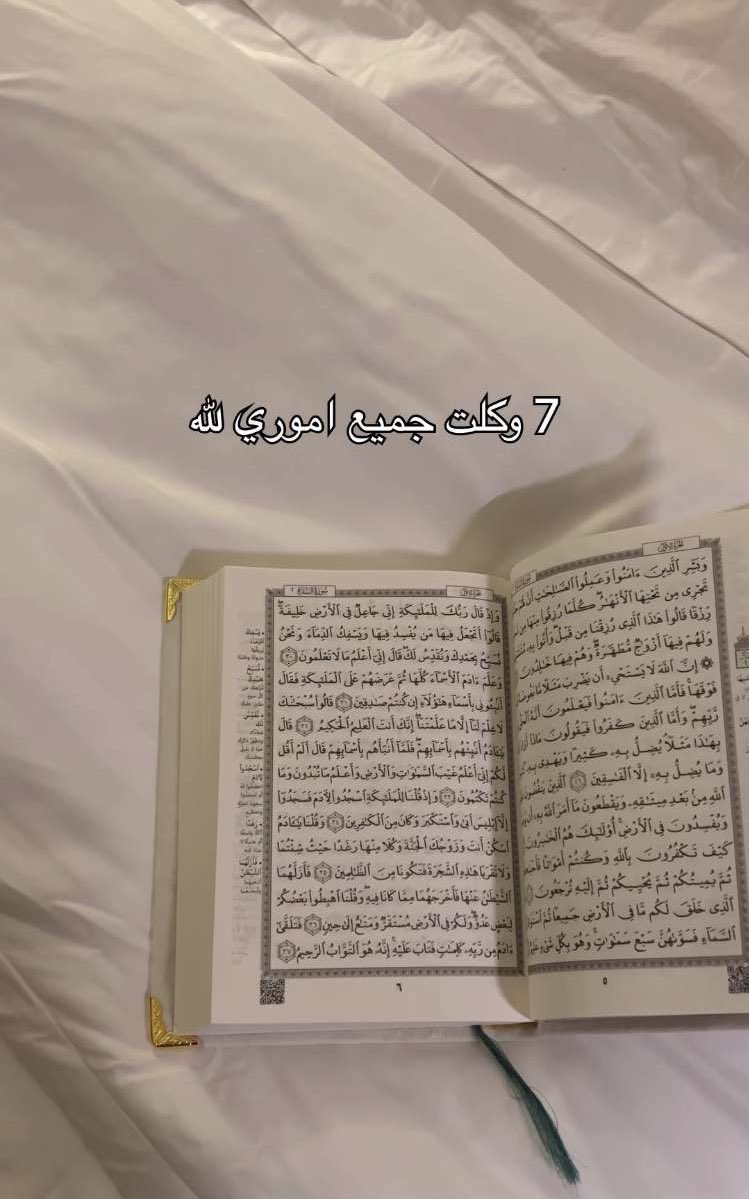 7 وكلت جميع اموري لله
وَبَشِّرِ ٱلَّذِينَ ءَامَنُوا۟ وَعَمِلُوا۟ ٱلصَّـٰلِحَـٰتِ أَنَّ
تَجْرِى مِن تَحْتِهَا ٱلْأَنْهَـٰرُ ۖ كُلَّمَا رُزِقُوا۟ مِنْهَا مِن
رِّزْقًا قَالُوا۟ هَـٰذَا ٱلَّذِى رُزِقْنَا مِن قَبْلُ ۖ وَأُتُوا۟ بِهِۦ
وَلَهُمْ فِيهَآ أَزْوَٰجٌ مُّطَهَّرَةٌ ۖ وَهُمْ فِيهَا خَـٰلِدُونَ
۞ إِنَّ ٱللَّهَ لَا يَسْتَحْىِۦٓ أَن يَضْرِبَ مَثَلًا مَّا بَعُوضَةً
فَوْقَهَا ۚ فَأَمَّا ٱلَّذِينَ ءَامَنُوا۟ فَيَعْلَمُونَ أَنَّهُ ٱلْحَقُّ
رَّبِّهِمْ ۖ وَأَمَّا ٱلَّذِينَ كَفَرُوا۟ فَيَقُولُونَ مَاذَآ
بِهَـٰذَا مَثَلًا ۘ يُضِلُّ بِهِۦ كَثِيرًا وَيَهْدِى بِهِۦ
وَمَا يُضِلُّ بِهِۦٓ إِلَّا ٱلْفَـٰسِقِينَ ٢٦ ٱلَّذِينَ يَنقُضُونَ
ٱللَّهِ مِنۢ بَعْدِ مِيثَـٰقِهِۦ وَيَقْطَعُونَ مَآ أَمَرَ ٱللَّهُ بِهِۦٓ أَن
وَيُفْسِدُونَ فِى ٱلْأَرْضِ ۚ أُو۟لَـٰٓئِكَ هُمُ ٱلْخَـٰسِرُونَ
كَيْفَ تَكْفُرُونَ بِٱللَّهِ وَكُنتُمْ أَمْوَٰتًا
ثُمَّ يُمِيتُكُمْ ثُمَّ يُحْيِيكُمْ ثُمَّ إِلَيْهِ تُرْجَعُونَ
ٱلَّذِى خَلَقَ لَكُم مَّا فِى ٱلْأَرْضِ جَمِيعًا ثُمَّ
ٱلسَّمَآءِ فَسَوَّىٰهُنَّ سَبْعَ سَمَـٰوَٰتٍ ۚ وَهُوَ بِكُلِّ شَىْءٍ
٥
سُورَةُ البَقَرَةِ ٢
وَإِذْ قَالَ رَبُّكَ لِلْمَلَـٰٓئِكَةِ إِنِّى جَاعِلٌ فِى ٱلْأَرْضِ خَلِيفَةً ۖ
قَالُوٓا۟ أَتَجْعَلُ فِيهَا مَن يُفْسِدُ فِيهَا وَيَسْفِكُ ٱلدِّمَآءَ وَنَحْنُ
نُسَبِّحُ بِحَمْدِكَ وَنُقَدِّسُ لَكَ ۖ قَالَ إِنِّىٓ أَعْلَمُ مَا لَا تَعْلَمُونَ ٣٠
وَعَلَّمَ ءَادَمَ ٱلْأَسْمَآءَ كُلَّهَا ثُمَّ عَرَضَهُمْ عَلَى ٱلْمَلَـٰٓئِكَةِ فَقَالَ
أَنۢبِـُٔونِى بِأَسْمَآءِ هَـٰٓؤُلَآءِ إِن كُنتُمْ صَـٰدِقِينَ ٣١ قَالُوا۟ سُبْحَـٰنَكَ
لَا عِلْمَ لَنَآ إِلَّا مَا عَلَّمْتَنَآ ۖ إِنَّكَ أَنتَ ٱلْعَلِيمُ ٱلْحَكِيمُ ٣٢ قَالَ
يَـٰٓـَٔادَمُ أَنۢبِئْهُم بِأَسْمَآئِهِمْ ۖ فَلَمَّآ أَنۢبَأَهُم بِأَسْمَآئِهِمْ قَالَ أَلَمْ أَقُل
لَّكُمْ إِنِّىٓ أَعْلَمُ غَيْبَ ٱلسَّمَـٰوَٰتِ وَٱلْأَرْضِ وَأَعْلَمُ مَا تُبْدُونَ وَمَا
كُنتُمْ تَكْتُمُونَ ٣٣ وَإِذْ قُلْنَا لِلْمَلَـٰٓئِكَةِ ٱسْجُدُوا۟ لِـَٔادَمَ فَسَجَدُوٓا۟
إِلَّآ إِبْلِيسَ أَبَىٰ وَٱسْتَكْبَرَ وَكَانَ مِنَ ٱلْكَـٰفِرِينَ ٣٤ وَقُلْنَا يَـٰٓـَٔادَمُ
ٱسْكُنْ أَنتَ وَزَوْجُكَ ٱلْجَنَّةَ وَكُلَا مِنْهَا رَغَدًا حَيْثُ شِئْتُمَا
وَلَا تَقْرَبَا هَـٰذِهِ ٱلشَّجَرَةَ فَتَكُونَا مِنَ ٱلظَّـٰلِمِينَ ٣٥ فَأَزَلَّهُمَا
ٱلشَّيْطَـٰنُ عَنْهَا فَأَخْرَجَهُمَا مِمَّا كَانَا فِيهِ ۖ وَقُلْنَا ٱهْبِطُوا۟ بَعْضُكُمْ
لِبَعْضٍ عَدُوٌّ ۖ وَلَكُمْ فِى ٱلْأَرْضِ مُسْتَقَرٌّ وَمَتَـٰعٌ إِلَىٰ حِينٍ ٣٦ فَتَلَقَّىٰٓ
ءَادَمُ مِن رَّبِّهِۦ كَلِمَـٰتٍ فَتَابَ عَلَيْهِ ۚ إِنَّهُۥ هُوَ ٱلتَّوَّابُ ٱلرَّحِيمُ ٣٧
٦